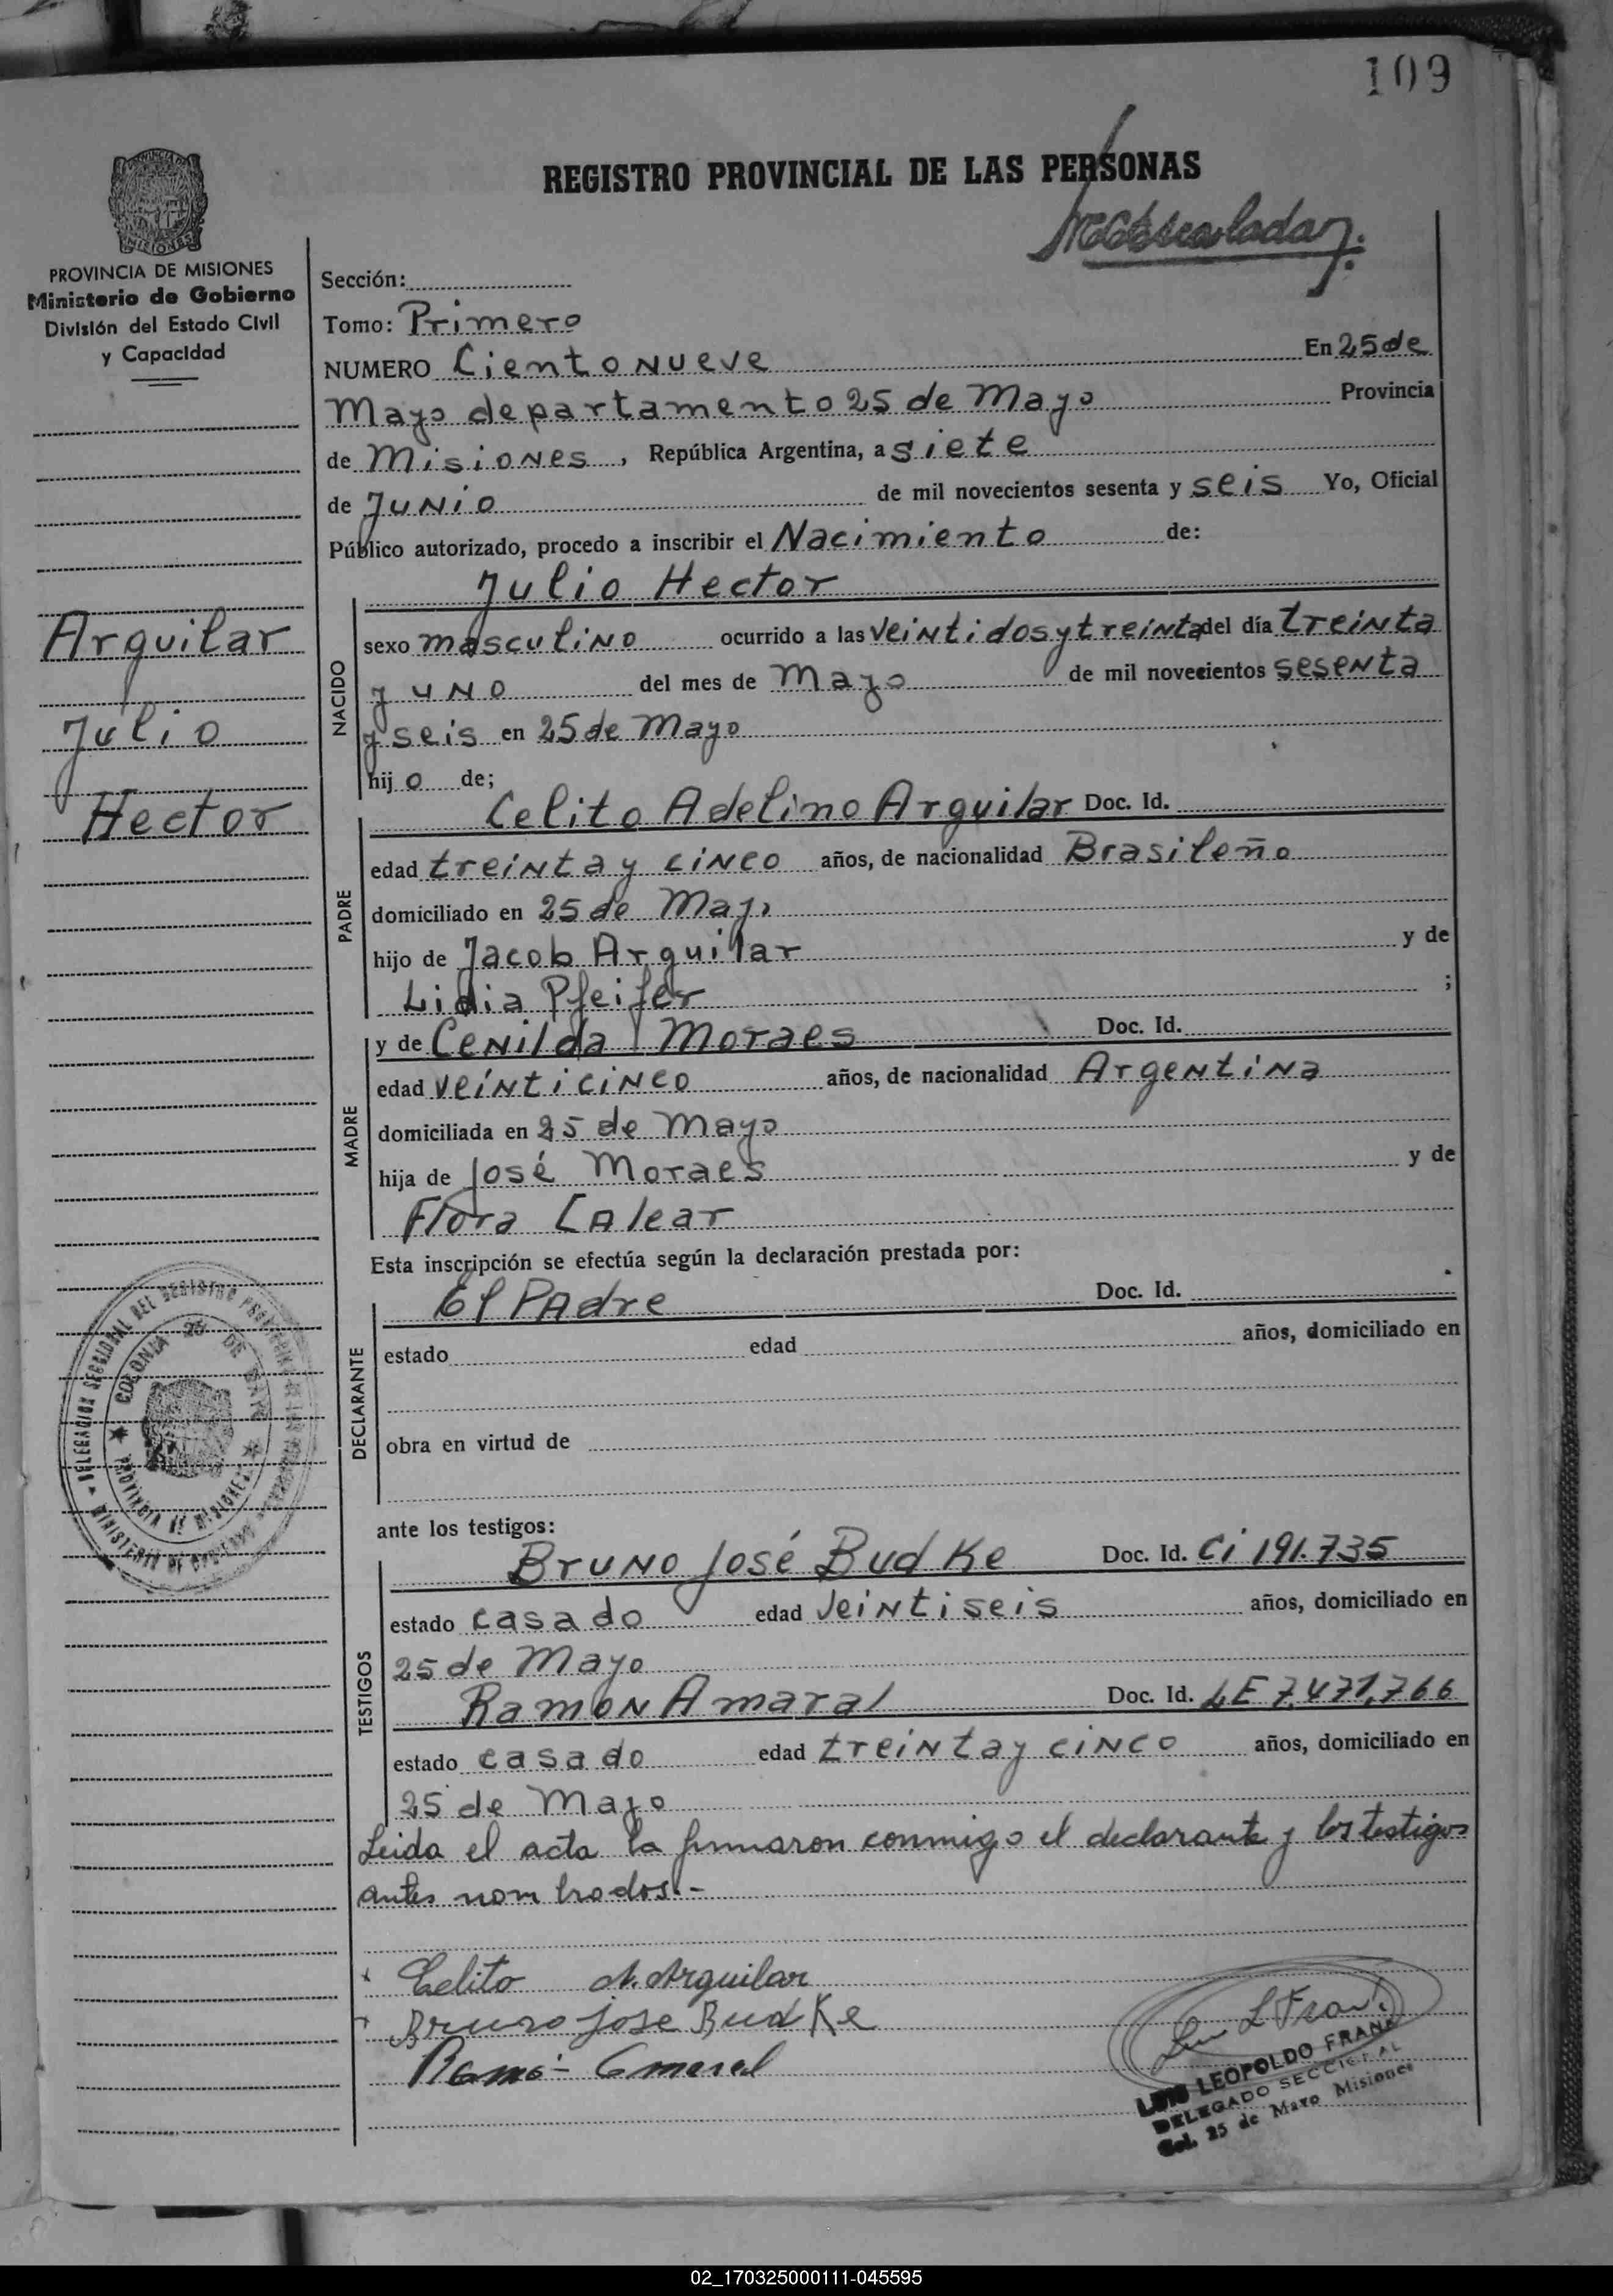 109
REGISTRO PROVINCIAL DE LAS PERSONAS
PROVINCIA DE MISIONES
Ministerio de Gobierno
División del Estado Civil
y Capacidad
Sección:
Tomo: Primero
NUMERO Ciento Nueve En 25 de
Mayo departamento 25 de Mayo Provincia
de Misiones, República Argentina, a siete
de Junio de mil novecientos sesenta y seis Yo, Oficial
Público autorizado, procedo a inscribir el Nacimiento de:
Arguilar
Julio
Hector
NACIDO
Julio Hector
sexo masculino ocurrido a las veintidos y treinta del día treinta
y uno del mes de Mayo de mil novecientos sesenta
y seis en 25 de Mayo
hijo de;
PADRE
Celito Adelino Arguilar Doc. Id.
edad treinta y cinco años, de nacionalidad Brasileño
domiciliado en 25 de Mayo
hijo de Jacob Arguilar y de
Lidia Pfeifer ;
MADRE
y de Cenilda Moraes Doc. Id.
edad veinticinco años, de nacionalidad Argentina
domiciliada en 25 de Mayo
hija de José Moraes y de
Flora Calear
Esta inscripción se efectúa según la declaración prestada por:
DECLARANTE
El Padre Doc. Id.
estado edad años, domiciliado en
obra en virtud de
DELEGACION SECCIONAL DEL REGISTRO
MINISTERIO DE GOBIERNO
COLONIA 25 DE MAYO
PROVINCIA DE MISIONES
ante los testigos:
TESTIGOS
Bruno José Budke Doc. Id. Ci 191.735
estado casado edad veintiseis años, domiciliado en
25 de Mayo
Ramon Amaral Doc. Id. LE 7.471.766
estado casado edad treinta y cinco años, domiciliado en
25 de Mayo
Leida el acta la firmaron conmigo el declarante y los testigos
antes nombrados.-
Celito A. Arguilar
Bruno jose Budke
LUIS LEOPOLDO FRANK
DELEGADO SECCIONAL
Col. 25 de Mayo Misiones
02_170325000111-045595